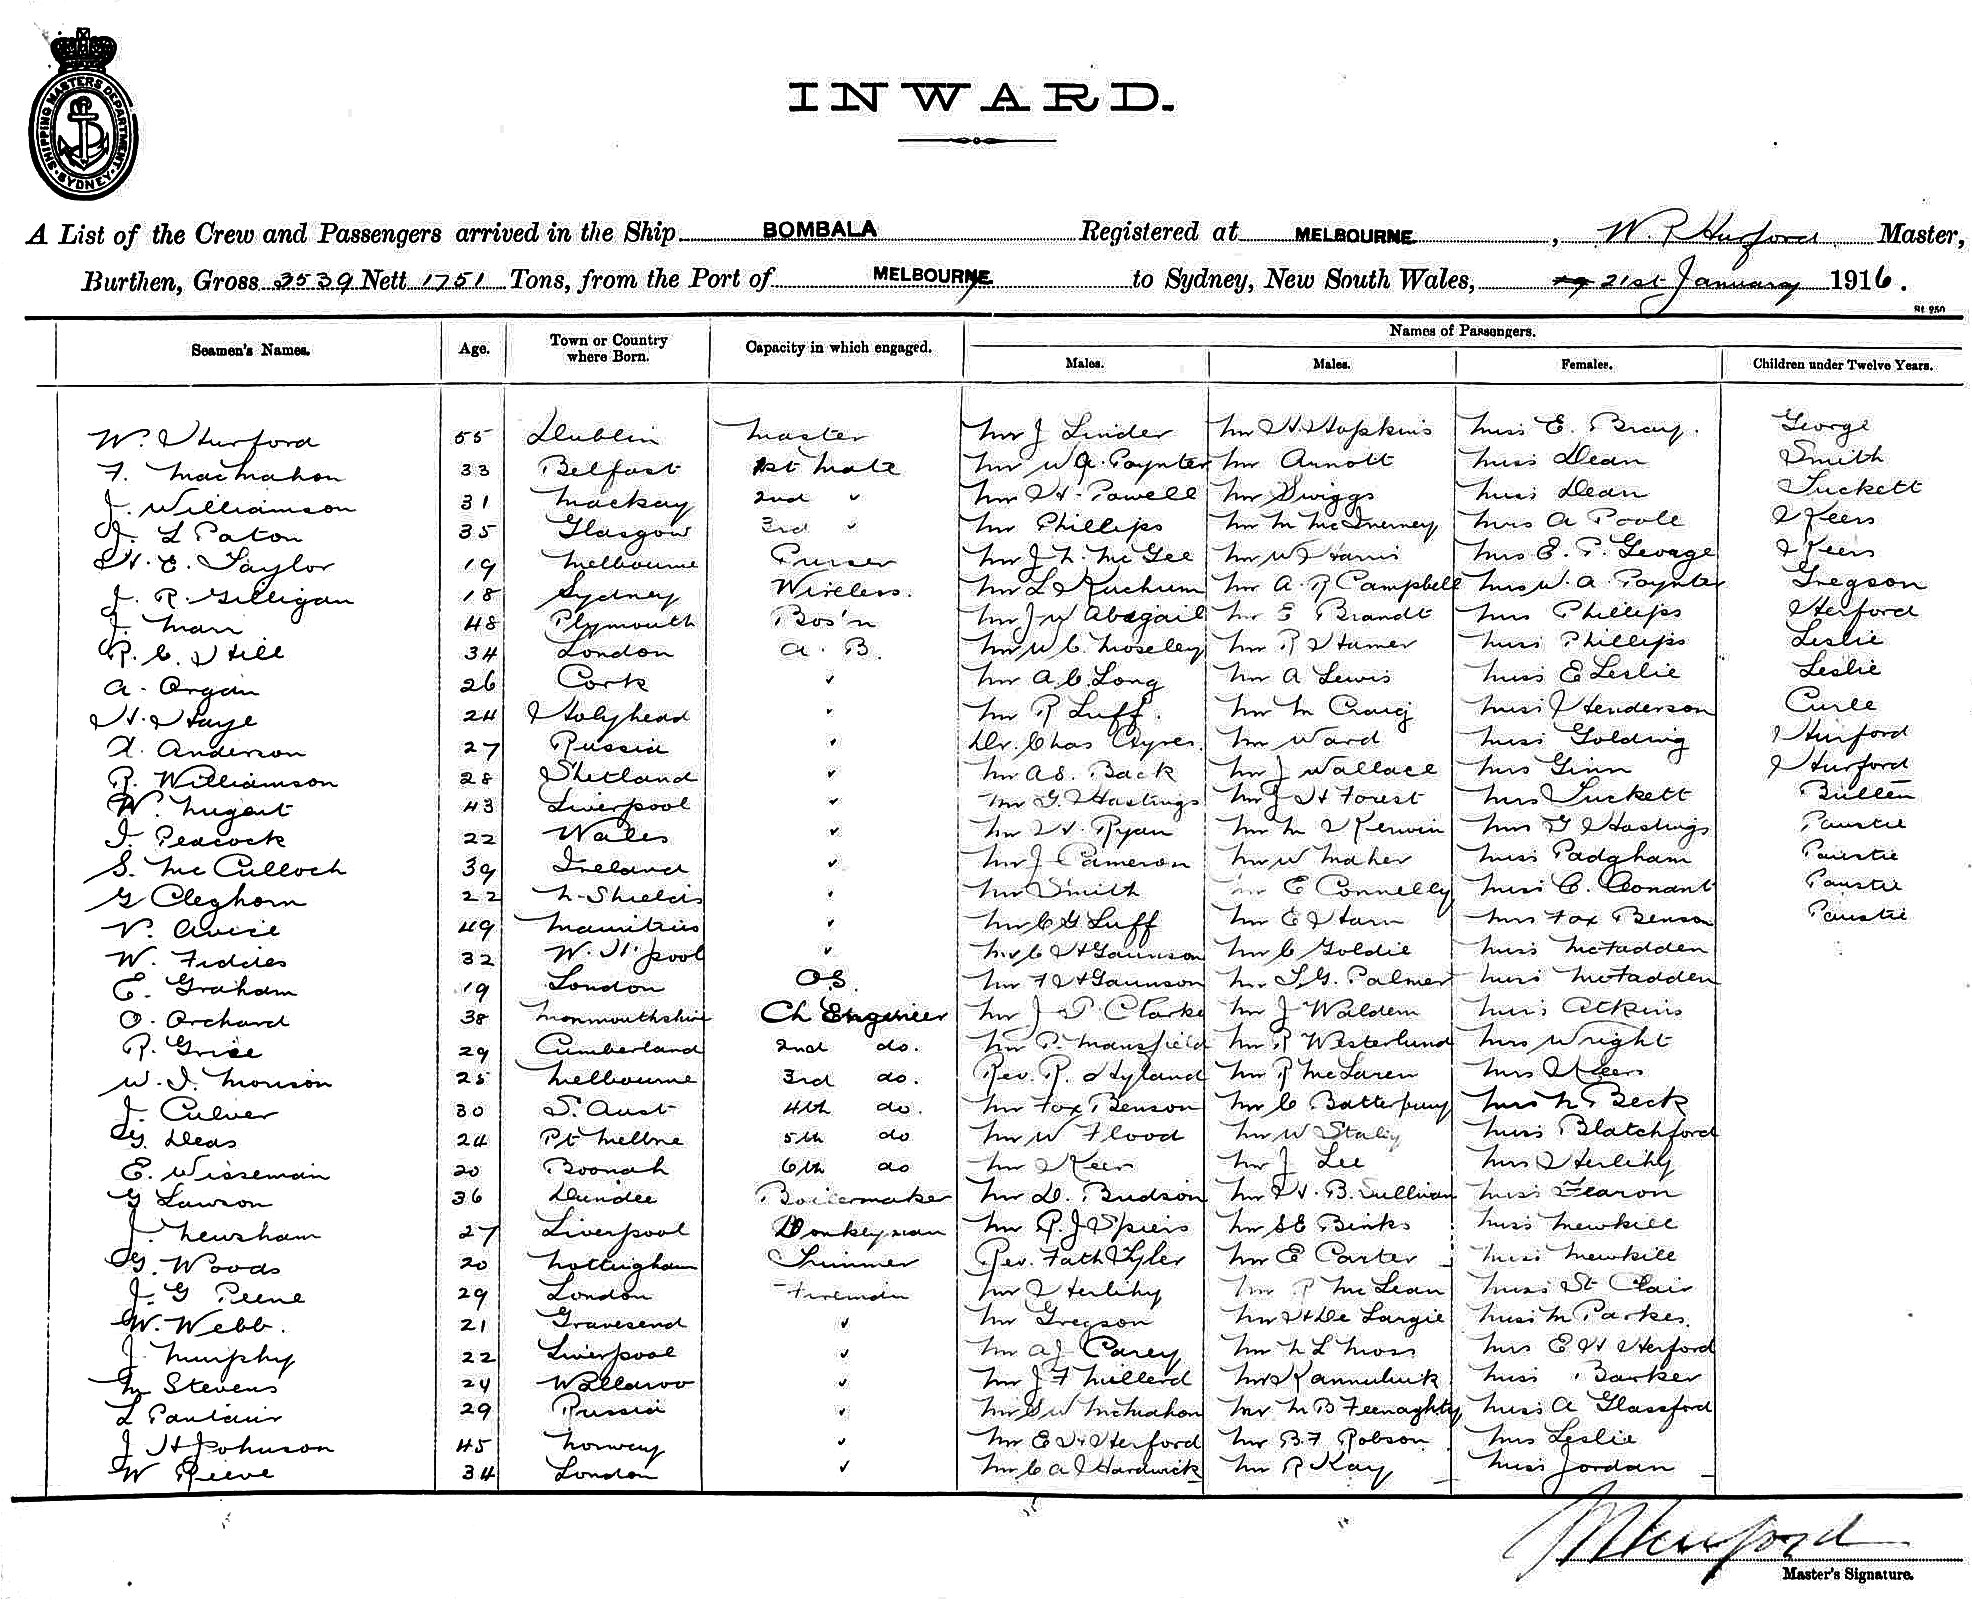 SHIPPING MASTERS DEPARTMENT
SYDNEY
INWARD.
A List of the Crew and Passengers arrived in the Ship BOMBALA Registered at MELBOURNE, W. P. Hurford Master,
Burthen, Gross 3539 Nett 1751 Tons, from the Port of MELBOURNE to Sydney, New South Wales, 21st January 1916.
St 950
Names of Passengers.
Seamen's Names. Age. Town or Country where Born. Capacity in which engaged. Males. Males. Females. Children under Twelve Years.
W. Hurford 55 Dublin Master Mr J Linder Mr H. Hopkins Miss E. Bray. George
F. MacMahon 33 Belfast 1st Mate Mr W A. Poynter Mr Arnott Miss Dean Smith
J. Williamson 31 Mackay 2nd " Mr H. Powell Mr Swiggs Miss Dean Tuckett
J. L Paton 35 Glasgow 3rd " Mr Phillips Mr M McInerney Mrs A Poole Keers
H. E. Taylor 19 Melbourne Purser Mr J. N. McGee Mr W Harris Mrs E. P. George Keers
J. R. Gilligan 18 Sydney Wireless. Mr L Mr A. R Campbell Mrs W. A. Poynter Gregson
J. Man 48 Plymouth Bos'n Mr J W Abagail Mr E Brandt Mrs Phillips Herford
R. C. Hill 34 London A. B. Mr W C. Moseley Mr R Hamer Miss Phillips Leslie
A. Organ 26 Cork " Mr A. C. Long Mr A Lewis Miss E Leslie Leslie
H. Haye 24 Holyhead " Mr R Luff. Mr M Craig Miss J Henderson Curle
A. Anderson 27 Russia " Dr. Chas Ayres. Mr Ward Miss Golding Hurford
R. Williamson 28 Shetland " Mr A S. Back Mr J Wallace Mrs Ginn Hurford
W. Nugent 43 Liverpool " Mr G. Hastings Mr J H Forest Mrs Tuckett Bullen
J. Peacock 22 Wales " Mr H. Ryan Mr M Kerwin Mrs G Hastings Paustie
S. McCulloch 39 Ireland " Mr J Cameron Mr W Maher Miss Padgham Paustie
G Cleghorn 22 N. Shields " Mr Smith Mr E Connelly Miss C. Conant Paustie
V. Avice 49 Mauritius " Mr C G Luff Mr E Harn Mrs Fox Benson Paustie
W. Fiddes 32 W. H'pool " Mr C H Gaunson Mr C Goldie Miss McFadden
E. Graham 19 London O.S. Mr F H Gaunson Mr T. G. Palmer Miss McFadden
O. Orchard 38 Monmouthshire Ch Engineer Mr J. P. Clarke Mr J Waldem Miss Atkins
R. Grise 29 Cumberland 2nd do. Mr P. Mansfield Mr R Westerlund Mrs Wright
W. J. Morison 25 Melbourne 3rd do. Rev. R. Hyland Mr R McLaren Mrs Keers
J. Culver 30 S. Aust 4th do. Mr Fox Benson Mr C Batterbury Miss N Beck
G. Deas 24 Pt Mellne 5th do Mr W Flood Mr W Staley Miss Blatchford
E. Wisseman 20 Boonah 6th do Mr Keers Mr J Lee Mrs Herlihy
G Lawson 36 Dundee Boilermaker Mr D. Budson Mr H. B. Sullivan Miss Fearon
J. Newsham 27 Liverpool Donkeyman Mr R. J Spiers Mr S E Binks Miss Mewkill
G. Woods 20 Nottingham Trimmer Rev. Fath Tyler Mr E Carter Miss Mewkill
J. G Peene 29 London Fireman Mr Herlihy Mr P McLean Miss St Clair
W. Webb. 21 Gravesend " Mr Gregson Mr H De Largie Miss M Parkes.
J. Murphy 22 Liverpool " Mr A J Carey Mr N L Moss Mrs E H Herford
M Stevens 24 Wallaroo " Mr J F Millerd Miss Barker
L 29 Russia " Mr S W McMahon Mr M B Feenaghty Miss A Glassford
J H Johnson 45 Norway " Mr E H Herford Mr B. F Robson Mrs Leslie
W Reeve 34 London " Mr C A Hardwick Mr R Kay Miss Jordan
W Hurford
Master's Signature.